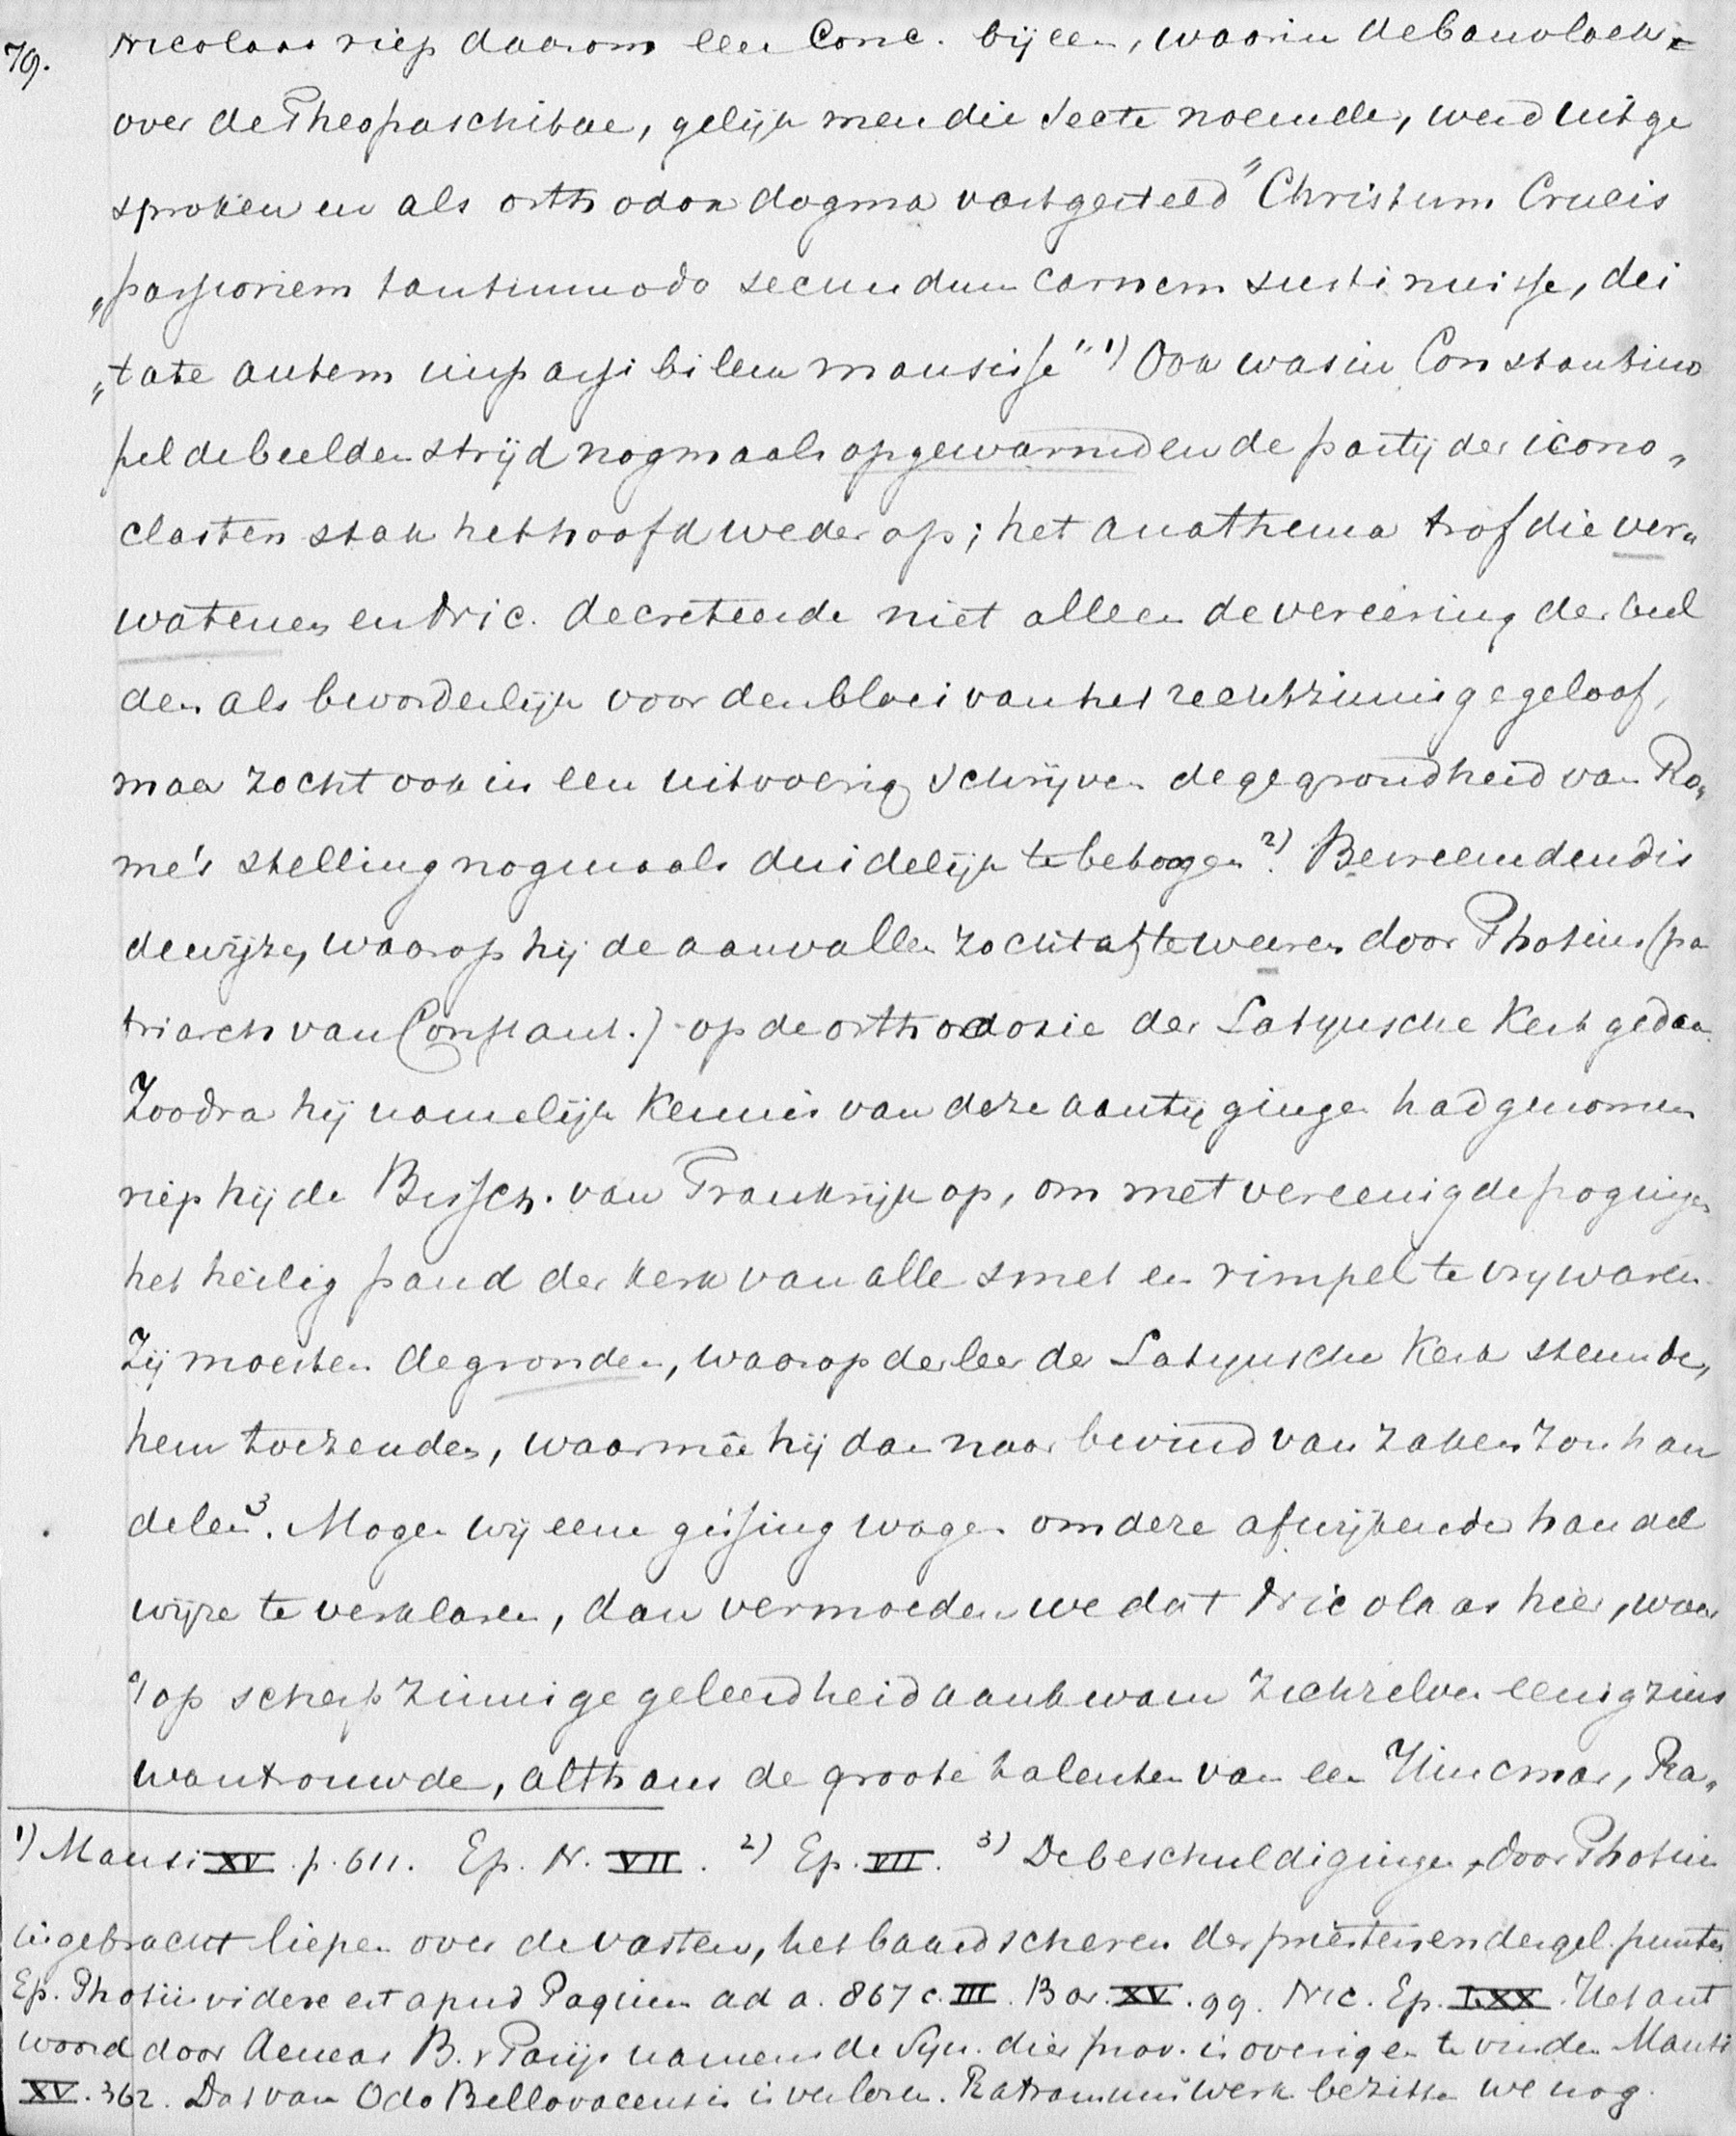 79.
Nicolaas riep daarom een Conc. bijeen, waarin de banvloek
over de Theopaschitae, gelijk men die secte noemde, werd uitge
sproken en als orthodox dogma vastgesteld "Christum Crucis
"passionem tantummodo secundum carnem sustinuisse, dei
"tate autem impassibilem mansisse" 1) Ook was in Constantino
pel de beeldenstrijd nogmaals opgewarmd en de partij der icono„
clasten stak het hoofd weder op; het anathema trof die ver„
watenen en Nic. decreteerde niet alleen de vereering der beel
den als bevorderlijk voor den bloei van het rechtzinnige geloof,
maar zocht ook in een uitvoerig schrijven de gegrondheid van Ro„
me's stelling nogmaals duidelijk te betoogen 2). Bevreemdend is
de wijze, waarop hij de aanvallen zocht af te weeren door Photius (pa
triarch van Constant.) op de orthodoxie der Latynsche Kerk gedaan
Zoodra hij namelijk kennis van deze aantijgingen had genomen
riep hij de Bissch. van Frankrijk op, om met vereenigde pogingen
het heilig pand der kerk van alle smet en rimpel te vrywaren.
Zij moesten de gronden, waarop de leer der Latynsche Kerk steunde,
hem toezenden, waarmêe hij dan naar bevind van zaken zou han
delen 3. Mogen wij eene gissing wagen om deze afwijkende handel
wijze te verklaren, dan vermoeden we dat Nicolaas hier, waar
't op scherpzinnige geleerdheid aankwam zichzelven eenigzins
wantrouwde, althans de groote talenten van een Hincmar, Ra„
1) Mansi XV. p. 611. Ep. N. VII. 2) Ep. VII. 3) De beschuldigingen, door Photius
ingebracht liepen over de vasten, het baardscheren der priesters en dergel. punten
Ep. Photii videre est apud Pagium ad a. 867 c. III. Bar. XV. 99. Nic. Ep. LXX. Het ant
woord door Aeneas B. v Parijs namens de Syn. dier prov. is overigens te vinden Mansi
XV. 362. Dat van Odo Bellovacensis is verloren. Ratramnus werk bezitten we nog.